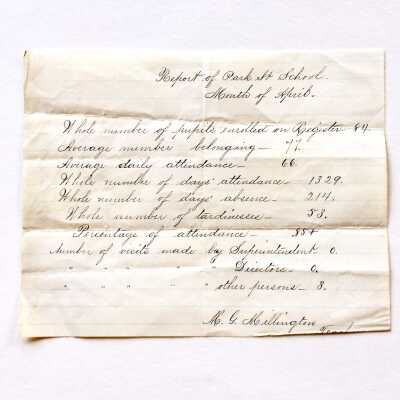 Report of Park St School.
Month of April.
Whole number of pupils enrolled on Register 84.
Average number belonging - 77.
Average daily attendance - 66.
Whole number of days' attendance - 1329.
Whole number of days' absence - 214.
Whole number of tardinesses - 53.
Percentage of attendance -
Number of visits made by Superintendent 0.
" " " " " Directors - 0.
" " " " " other persons - 8.
M. G. Millington